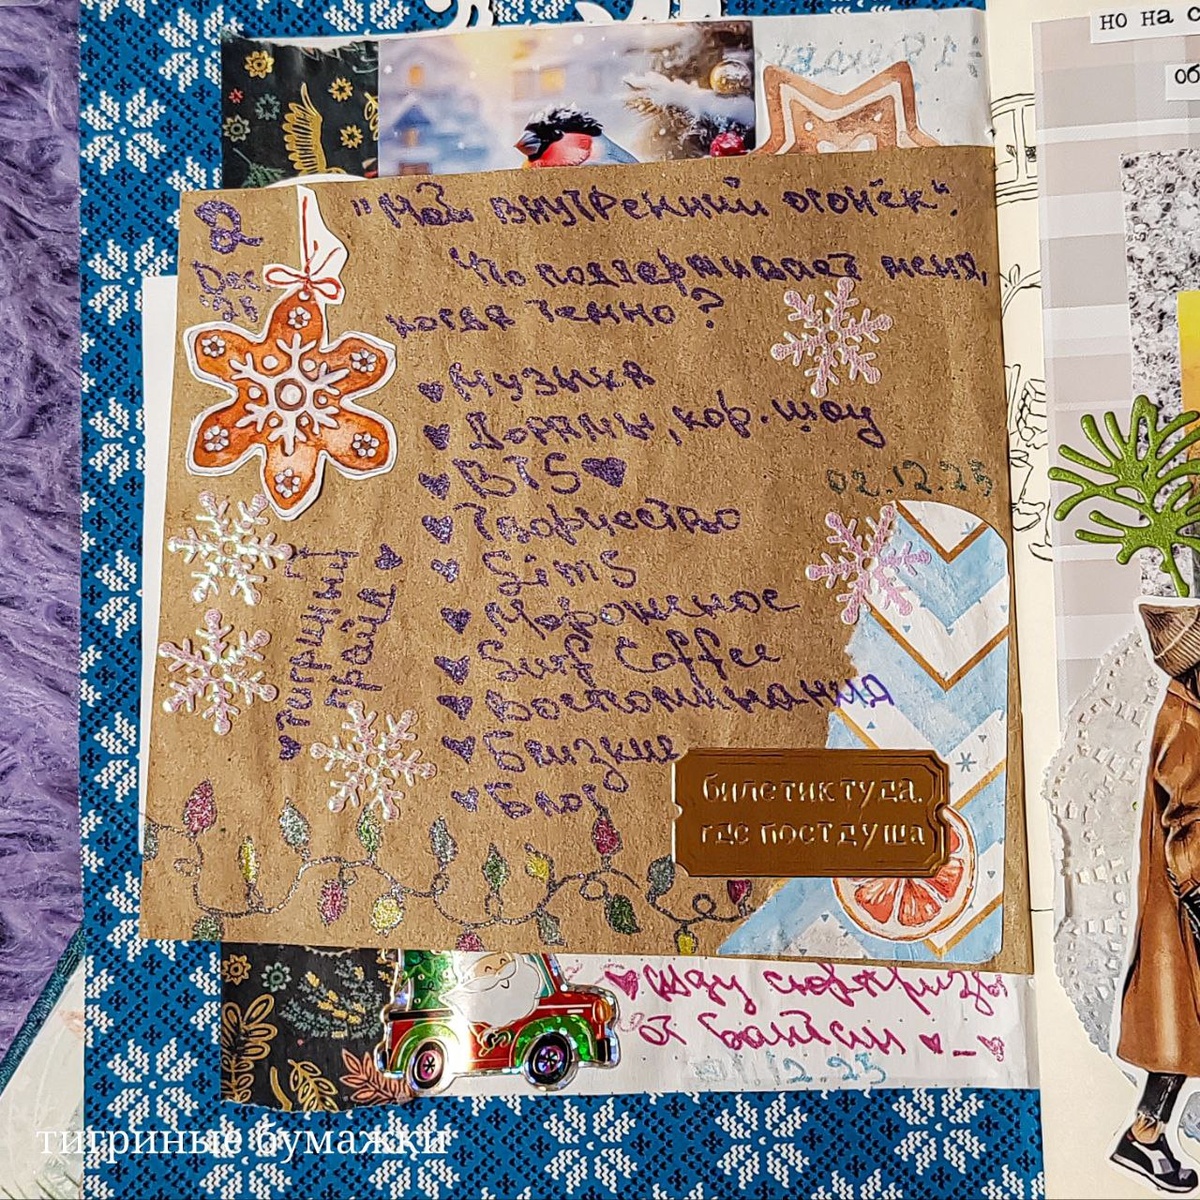 но на с
об
2
Dec
'25
"Мой внутренний огонёк".
Что поддерживает меня,
когда темно?
Музыка
Дорамы, кор. шоу
BTS
02.12.25
Творчество
Sims
Мороженое
Surf Coffee
Воспоминания
Близкие
Блог
Тигриный
прайд
билетик туда,
где поёт душа
жду сюрпризы
от бантан
01.12.25
тигриные бумажки